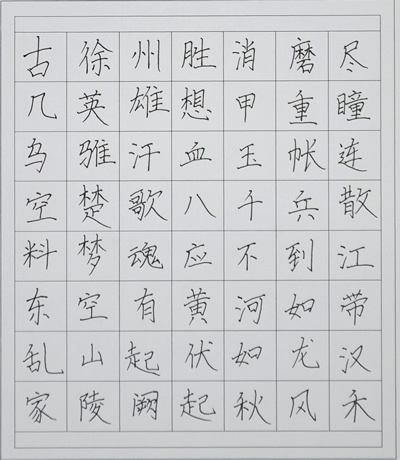 古徐州胜消磨尽
几英雄想甲重瞳
乌骓汗血玉帐连
空楚歌八千兵散
料梦魂应不到江
东空有黄河如带
乱山起伏如龙汉
家陵阙起秋风禾